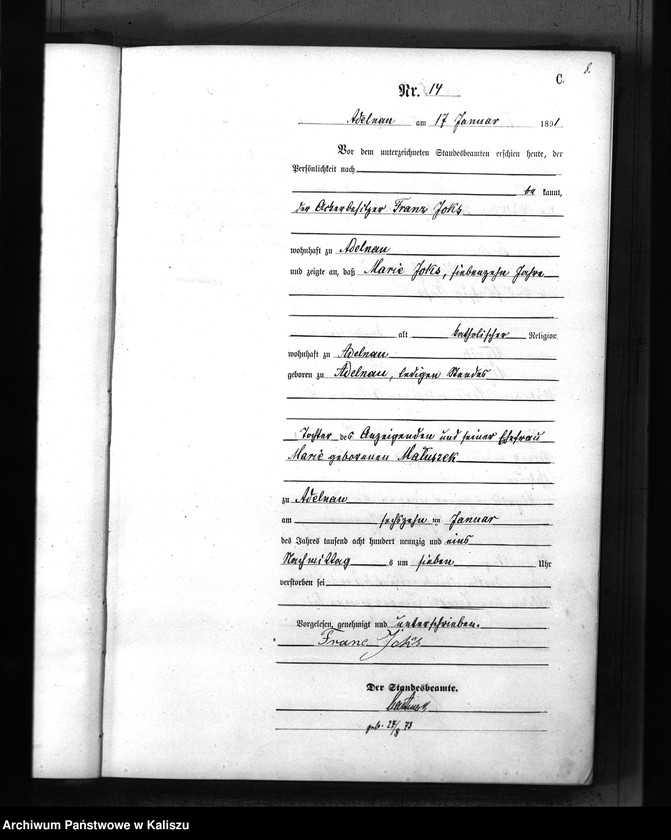 8.
C.
Nr. 14
Adelnau am 17 Januar 1891
Vor dem unterzeichneten Standesbeamten erschien heute, der
Persönlichkeit nach
be kannt,
der Ackerbesitzer Franz Joks
wohnhaft zu Adelnau
und zeigte an, daß Marie Joks, siebenzehn Jahre
alt katholischer Religion
wohnhaft zu Adelnau
geboren zu Adelnau, ledigen Standes
Tochter des Anzeigenden und seiner Ehefrau
Marie geborenen Matuszek
zu Adelnau
am sechszehn ten Januar
des Jahres tausend acht hundert neunzig und eins
Nachmittag s um sieben Uhr
verstorben sei
Vorgelesen, genehmigt und unterschrieben.
Franc Joks
Der Standesbeamte.
geb. 27/8 73
Archiwum Państwowe w Kaliszu